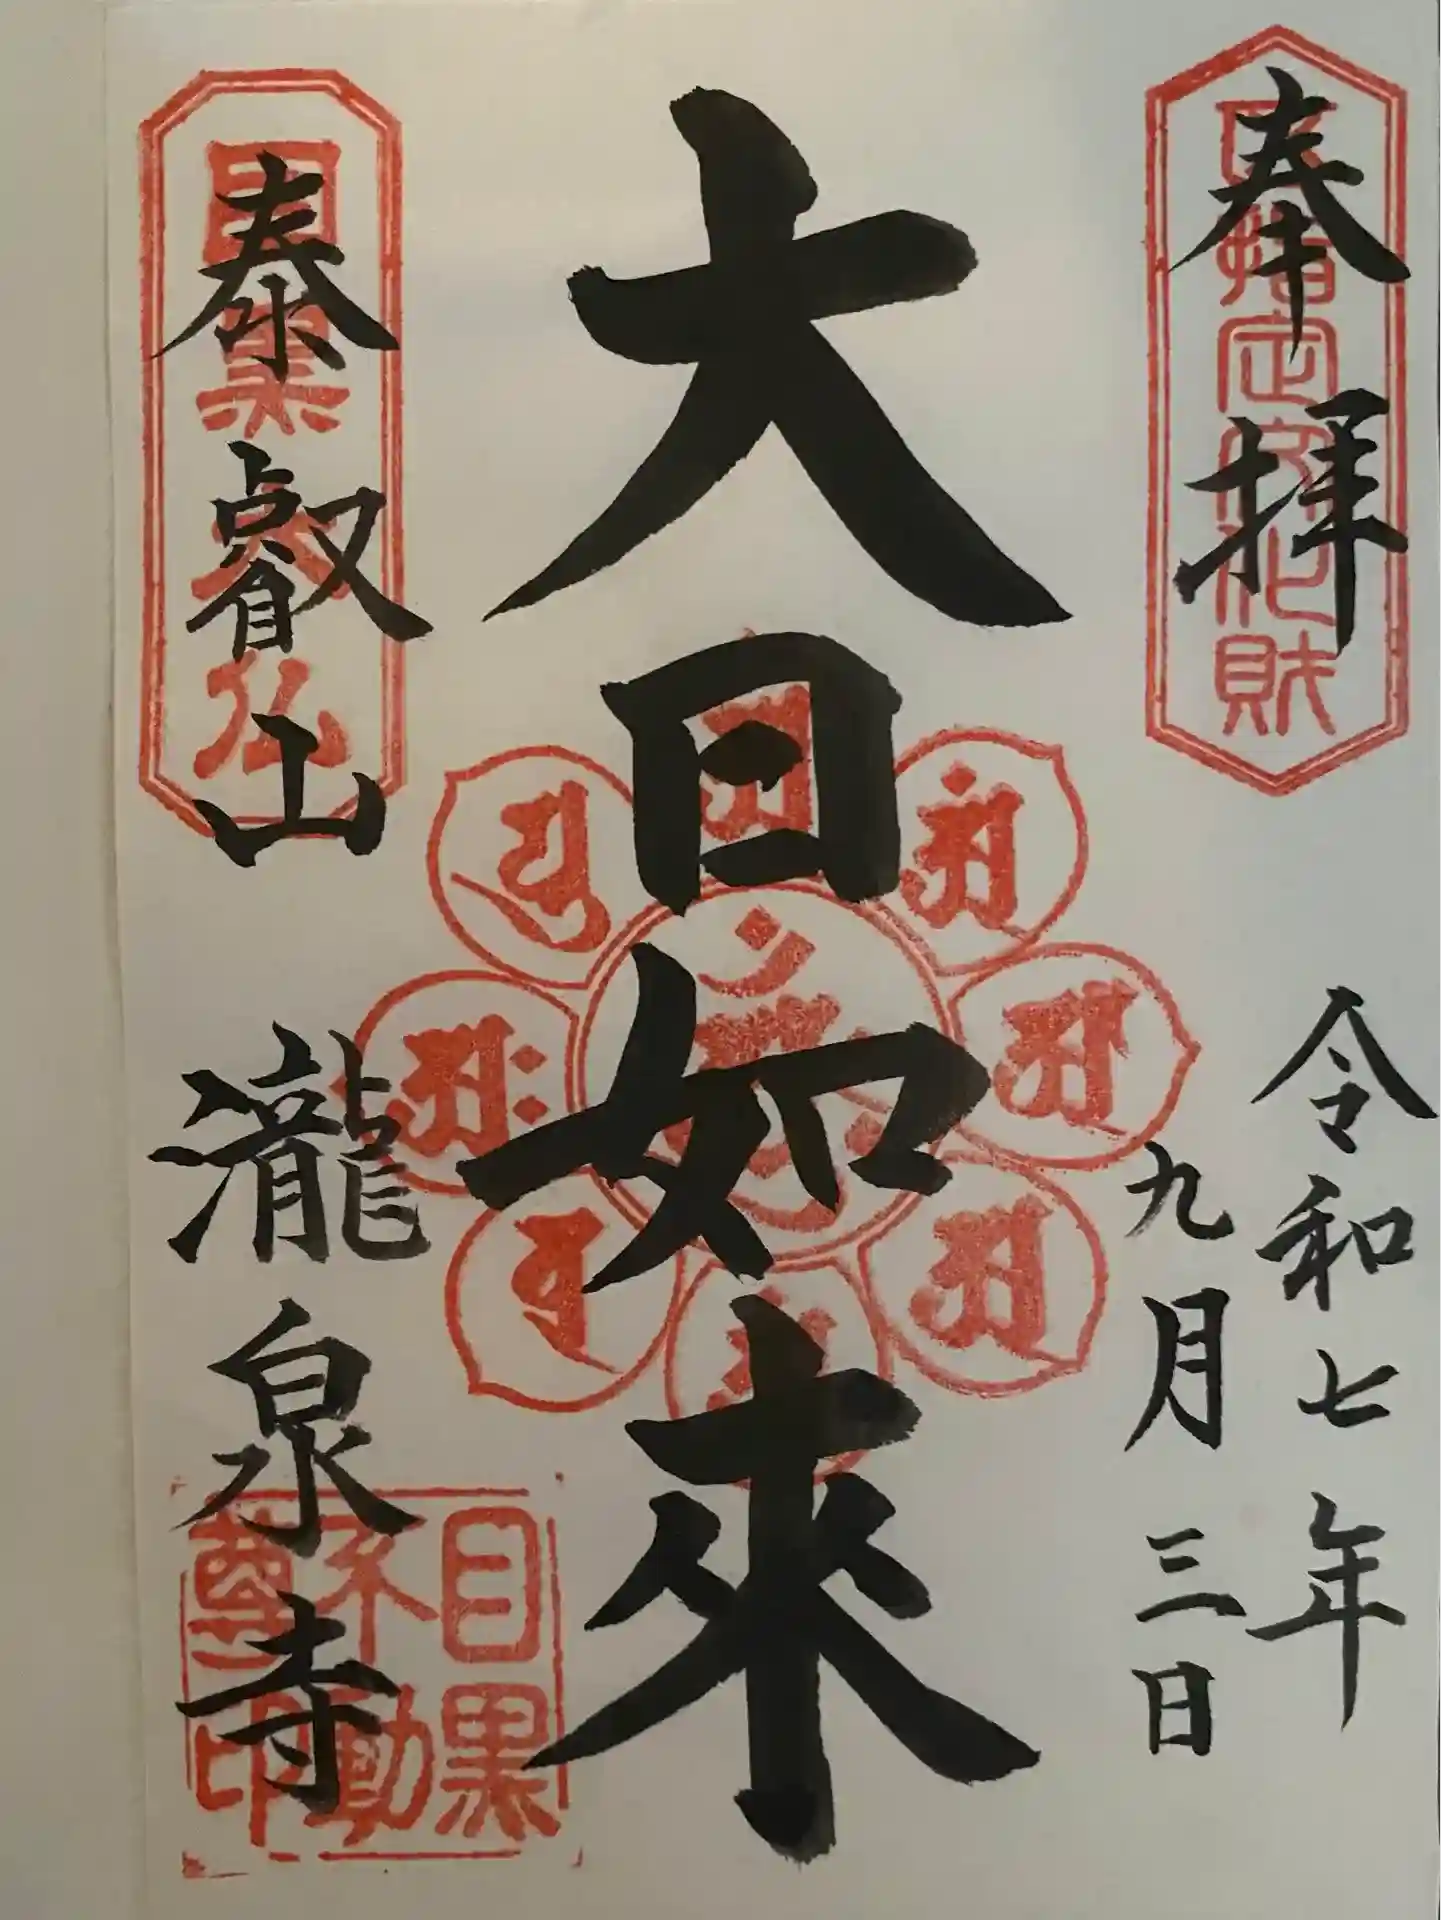 奉拝
区指定文化財
令和七年
九月三日
大日如來
泰叡山 瀧泉寺
目黒大仏
目黒
不動
尊印